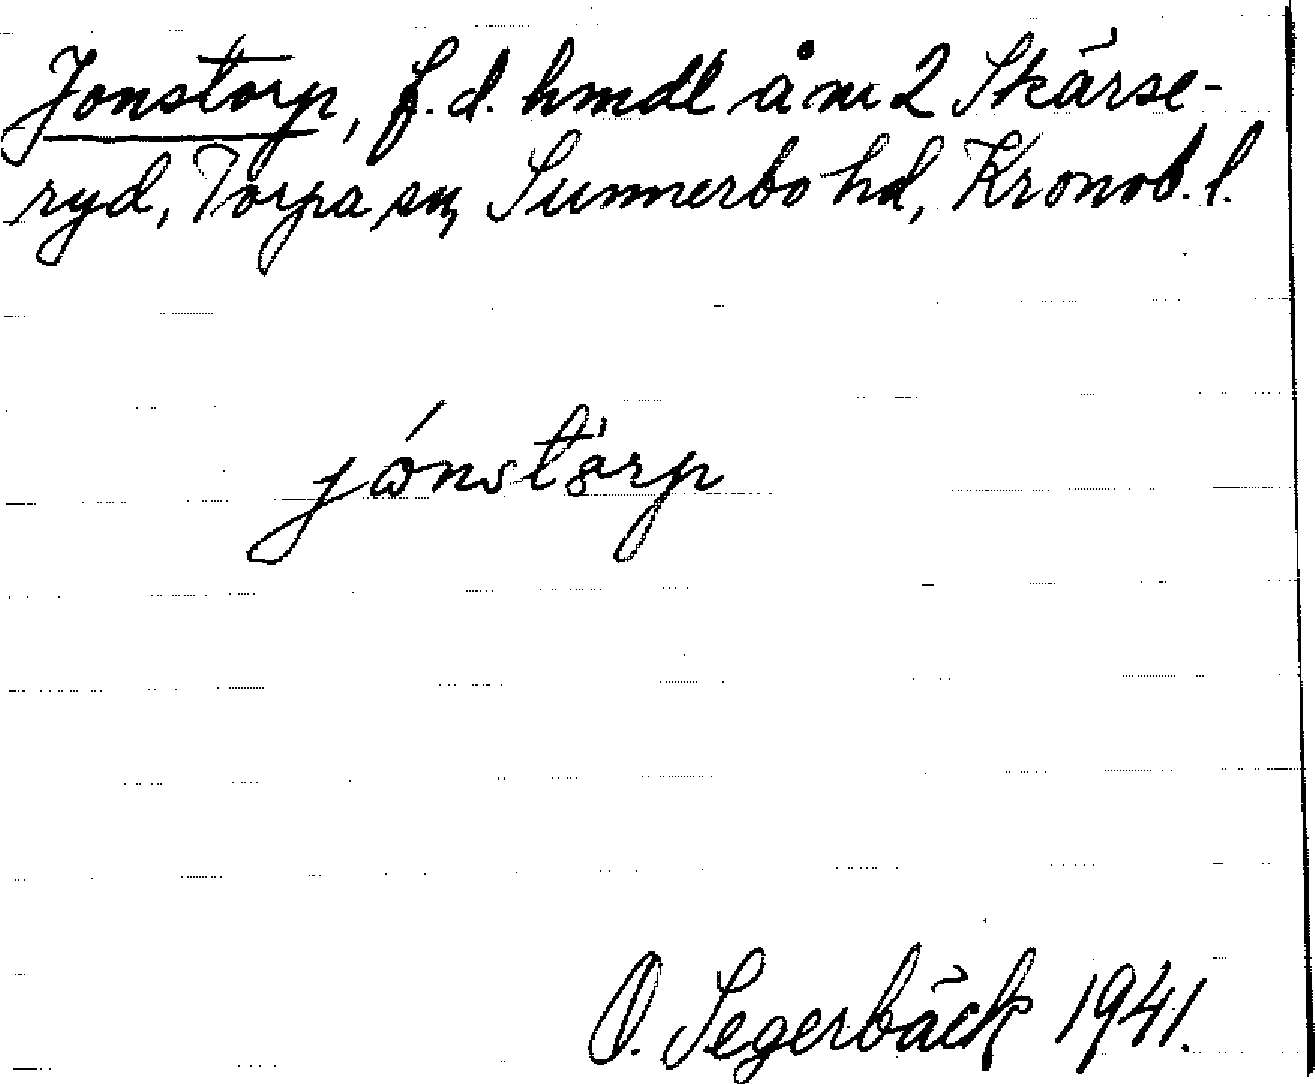 Jonstorp, f.d. hmdl å nr 2 Skärse-
ryd, Torpa sn, Sunnerbo hd, Kronob. l.
O. Segerbäck 1941.